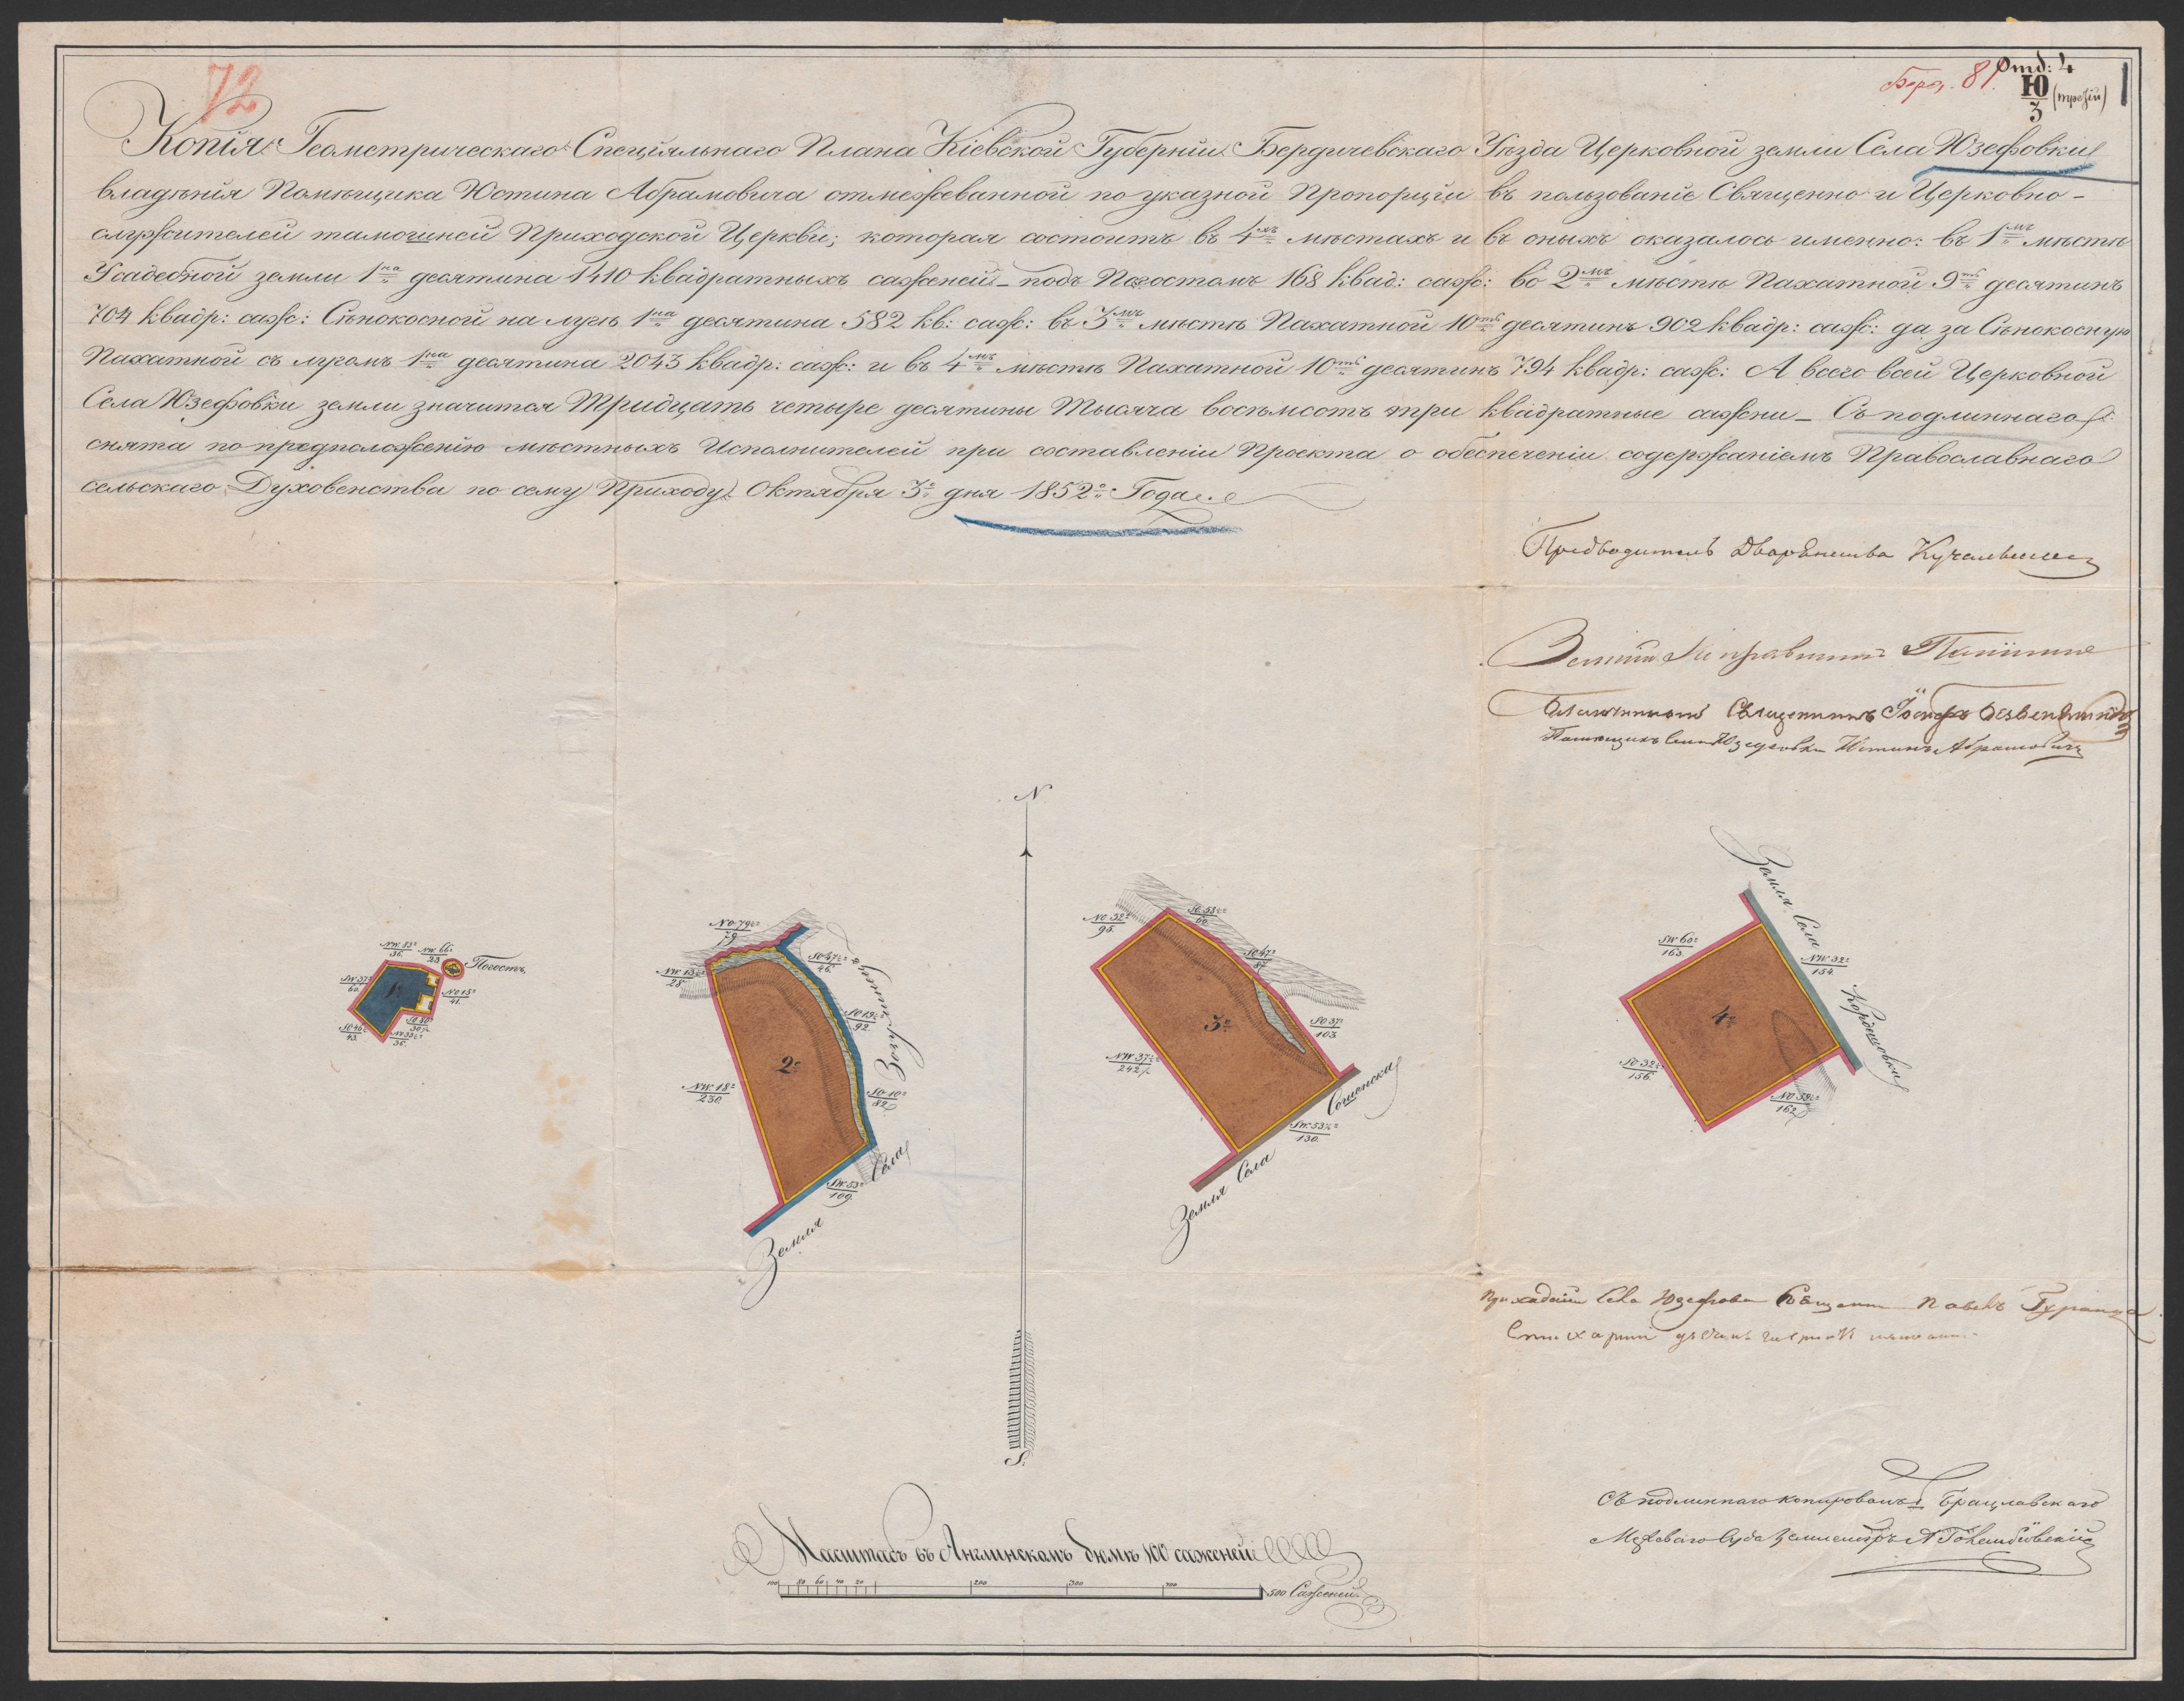 72
Берд. 81.
Отд: 4
Ю
3
(третій)
1
Копія Геометрическаго Спеціяльнаго Плана Кіевской Губерніи Бердичевскаго Уѣзда Церковной земли Села Юзефовки
владѣнія Помѣщика Юстина Абрамовича отмежеванной по указной Пропорціи въ пользованіе Священно и Церковно-
служителей тамошней Приходской Церкви; которая состоитъ въ 4хъ мѣстахъ и въ оныхъ оказалось именно: въ 1мъ мѣстѣ
Усадебной земли 1на десятина 1410 квадратныхъ саженей - подъ Погостомъ 168 квад: саж: во 2мъ мѣстѣ Пахатной 9ть десятинъ
704 квадр: саж: Сѣнокосной на лугѣ 1на десятина 582 кв: саж: въ 3мъ мѣстѣ Пахатной 10ть десятинъ 902 квадр: саж: да за Сѣнокосную
Пахатной съ лугомъ 1на десятина 2043 квадр: саж: и въ 4мъ мѣстѣ Пахатной 10ть десятинъ 794 квадр: саж: А всего всей Церковной
Села Юзефовки земли значится Тридцать четыре десятины Тысяча восемьсотъ три квадратные сажни - Съ подлиннаго
снята по предположенію мѣстныхъ Исполнителей при составленіи Проекта о обезпеченіи содержаніемъ Православнаго
сельскаго Духовенства по сему Приходу Октября 3го дня 1852го Года
Предводитель Дворянства
Земскій Исправникъ
Благочинный Священникъ Іосифъ
Помѣщикъ Села Юзефовки Юстинъ Абрамовичъ
N
NW. 83° 36.
NW. 66. 23
Погостъ
SW 37° 60.
1е
NO 15° 41.
SO 46½ 43.
SO 80° 30½
NO 33½° 35.
NO 79½° 79
NW 13½° 28
SO 47½° 46.
SO 19½° 92
2е
NW. 18° 230.
SO 10° 82½
SW. 53° 109.
Земля Села Зозулинецъ
NO 52° 95.
SO 58½° 60.
SO 47° 87
3е
SO 37° 103
NW. 37½° 242½
SW. 53¼° 130.
Земля Села Сошенски
Земля Села Кордышовки
SW 60° 163.
NW 32° 154
4е
SO 32½ 156.
NO 59½° 162
S.
Приходскій Села Юзефовки Священникъ Павелъ
Масштабъ въ Англинскомъ дюмѣ 100 саженей
100 80 60 40 20 200 300 300 500 Саженей
Съ подлиннаго копировалъ Брацлавскаго
Межеваго Суда Землемѣръ